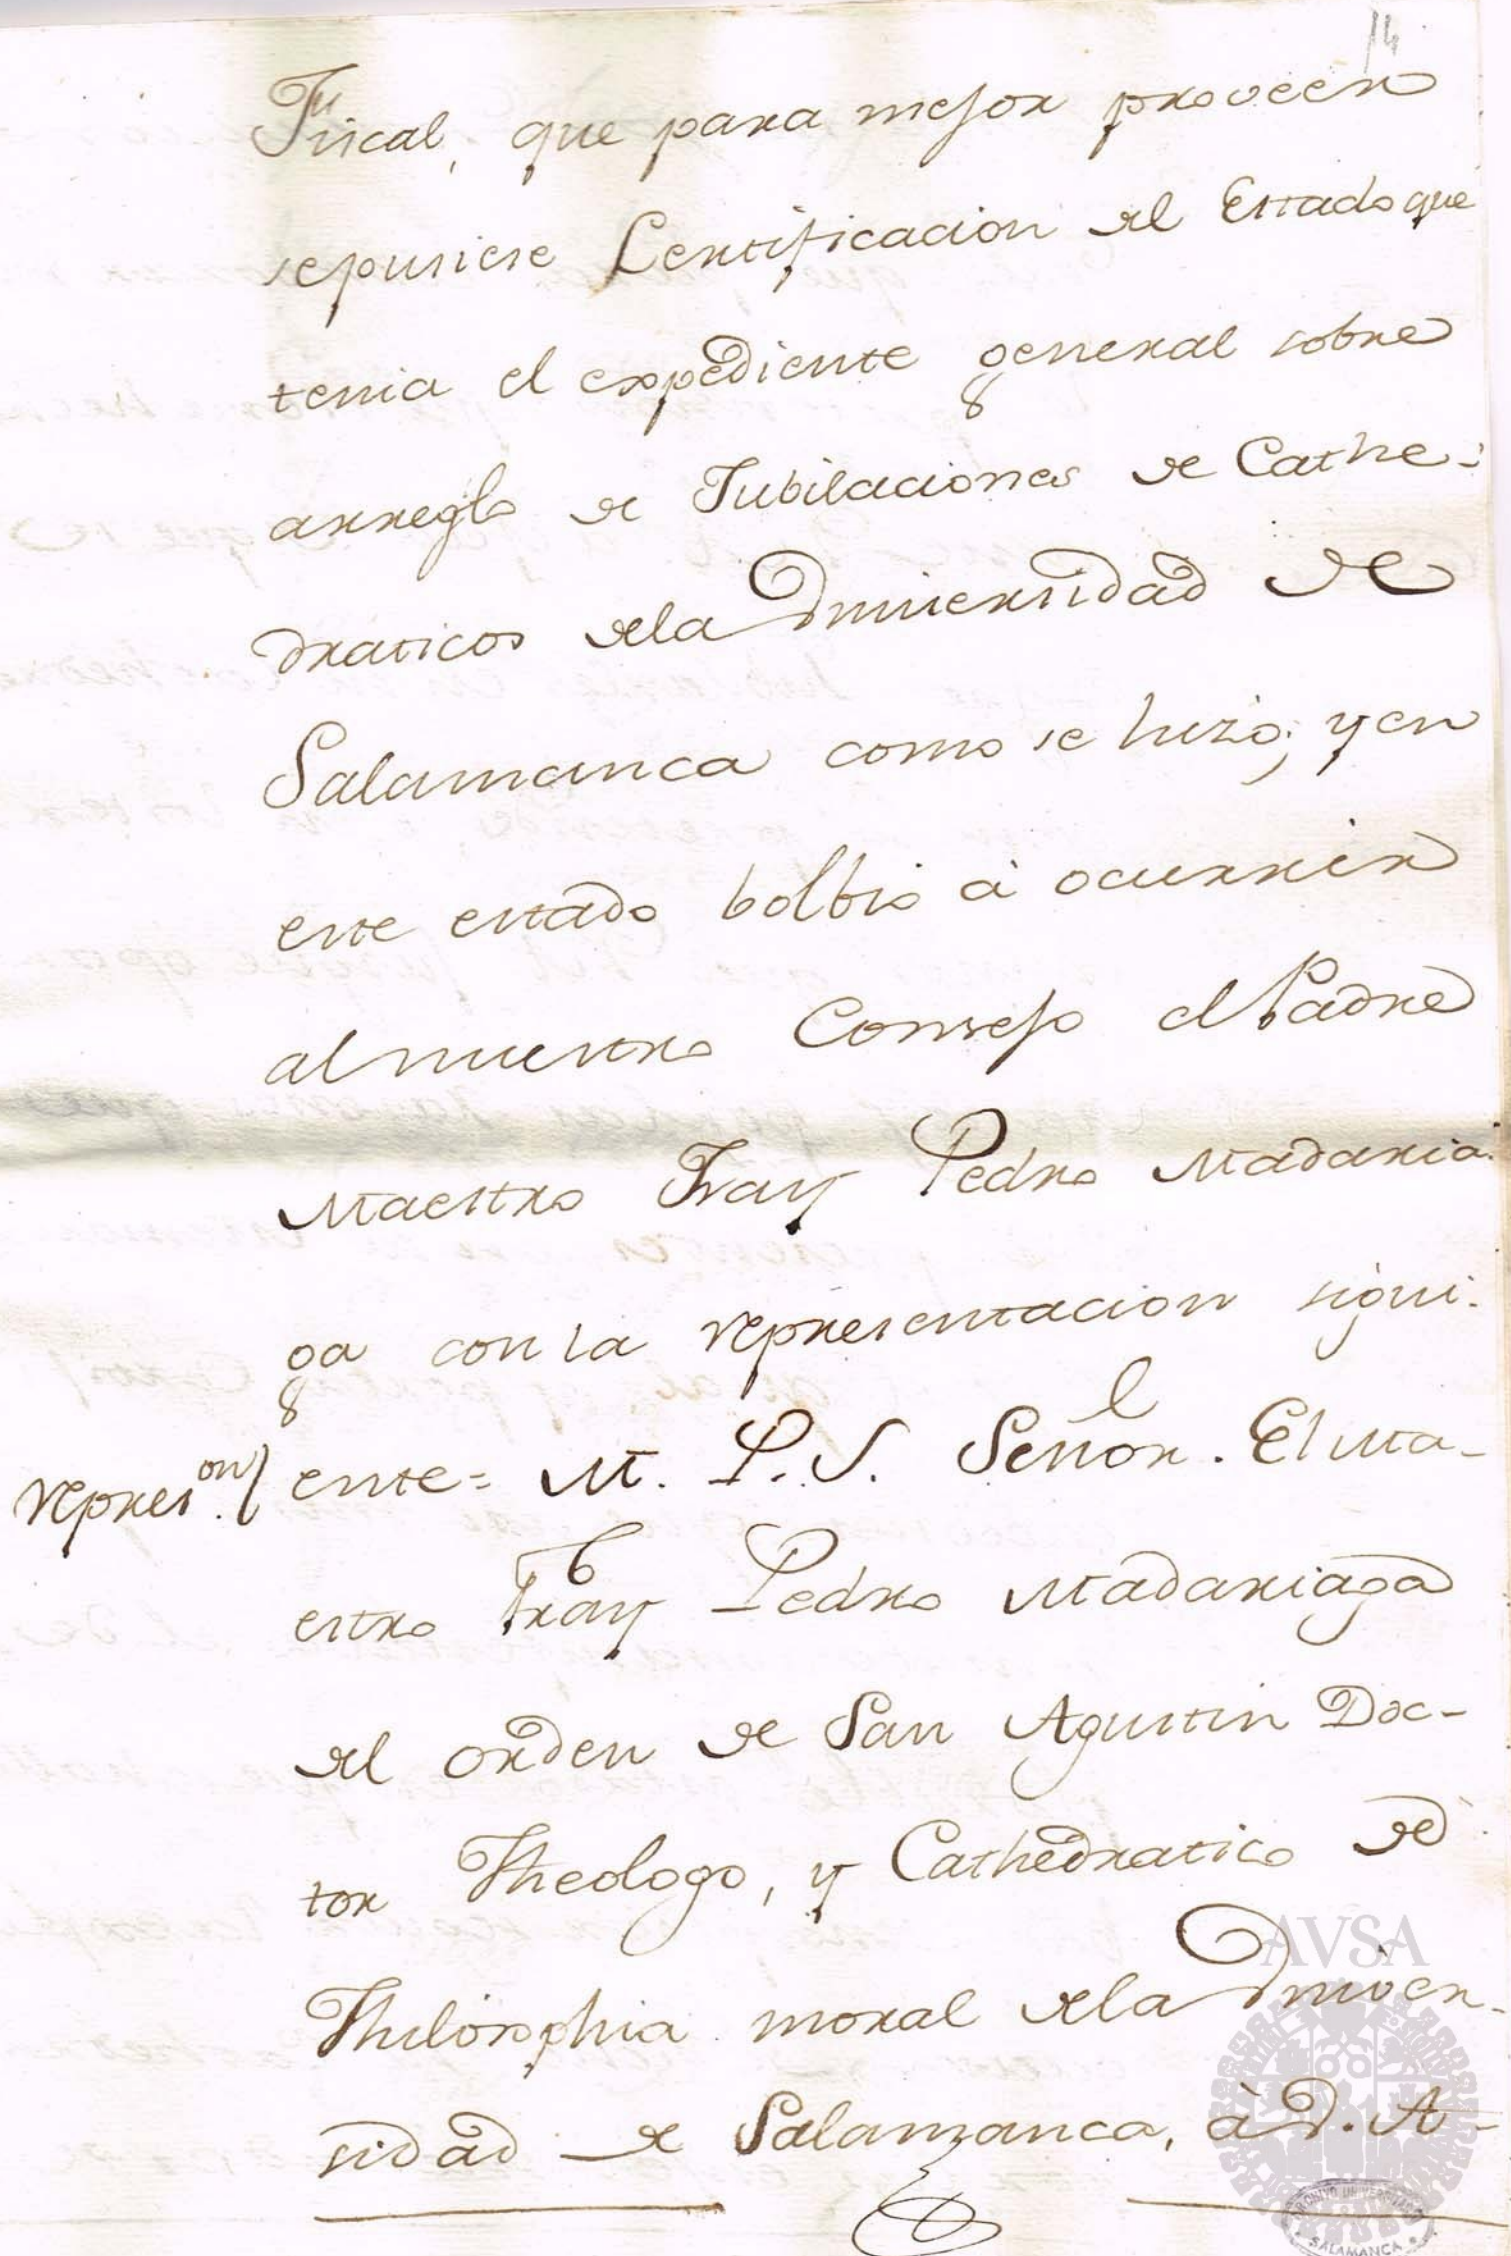 14
Fiscal, que para mejor proveer
sepusiese Certificacion del Estado que
tenia el expediente general sobre
arreglo de Jubilaciones de Cathe-
draticos dela Universidad de
Salamanca como se hizo; y en
este estado bolbio à ocurrir
al nuestro Consejo el Padre
Maestro Fray Pedro Madaria-
ga con la representacion sigui-
ente= M. P. S. Señor. El Ma-
represon.
estro Fray Pedro Madariaga
del orden de San Agustin Doc-
tor Theologo, y Cathedratico de
Philosophia moral dela Univer-
sidad de Salamanca, à V. A-
AVSA
ARCHIVO UNIVERSITARIO
SALAMANCA